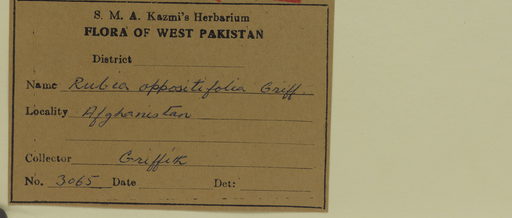 S. M. A. Kazmi's Herbarium
FLORA OF WEST PAKISTAN
District
Name Rubia oppositifolia Griff.
Locality Afghanistan
Collector Griffith
No. 3065 Date Det: